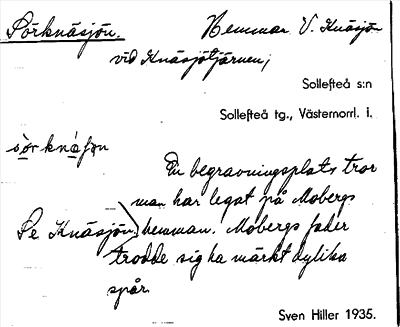 Sörknäsjön.
Hemman V. Knäsjön
vid Knäsjötjärnen;
Sollefteå s:n
Sollefteå tg., Västernorrl. l.
sö̀r knásjọn
En begravningsplats tror
man har legat på Mobergs
Se Knäsjön hemman. Mobergs fader
trodde sig ha märkt dylika
spår.
Sven Hiller 1935.